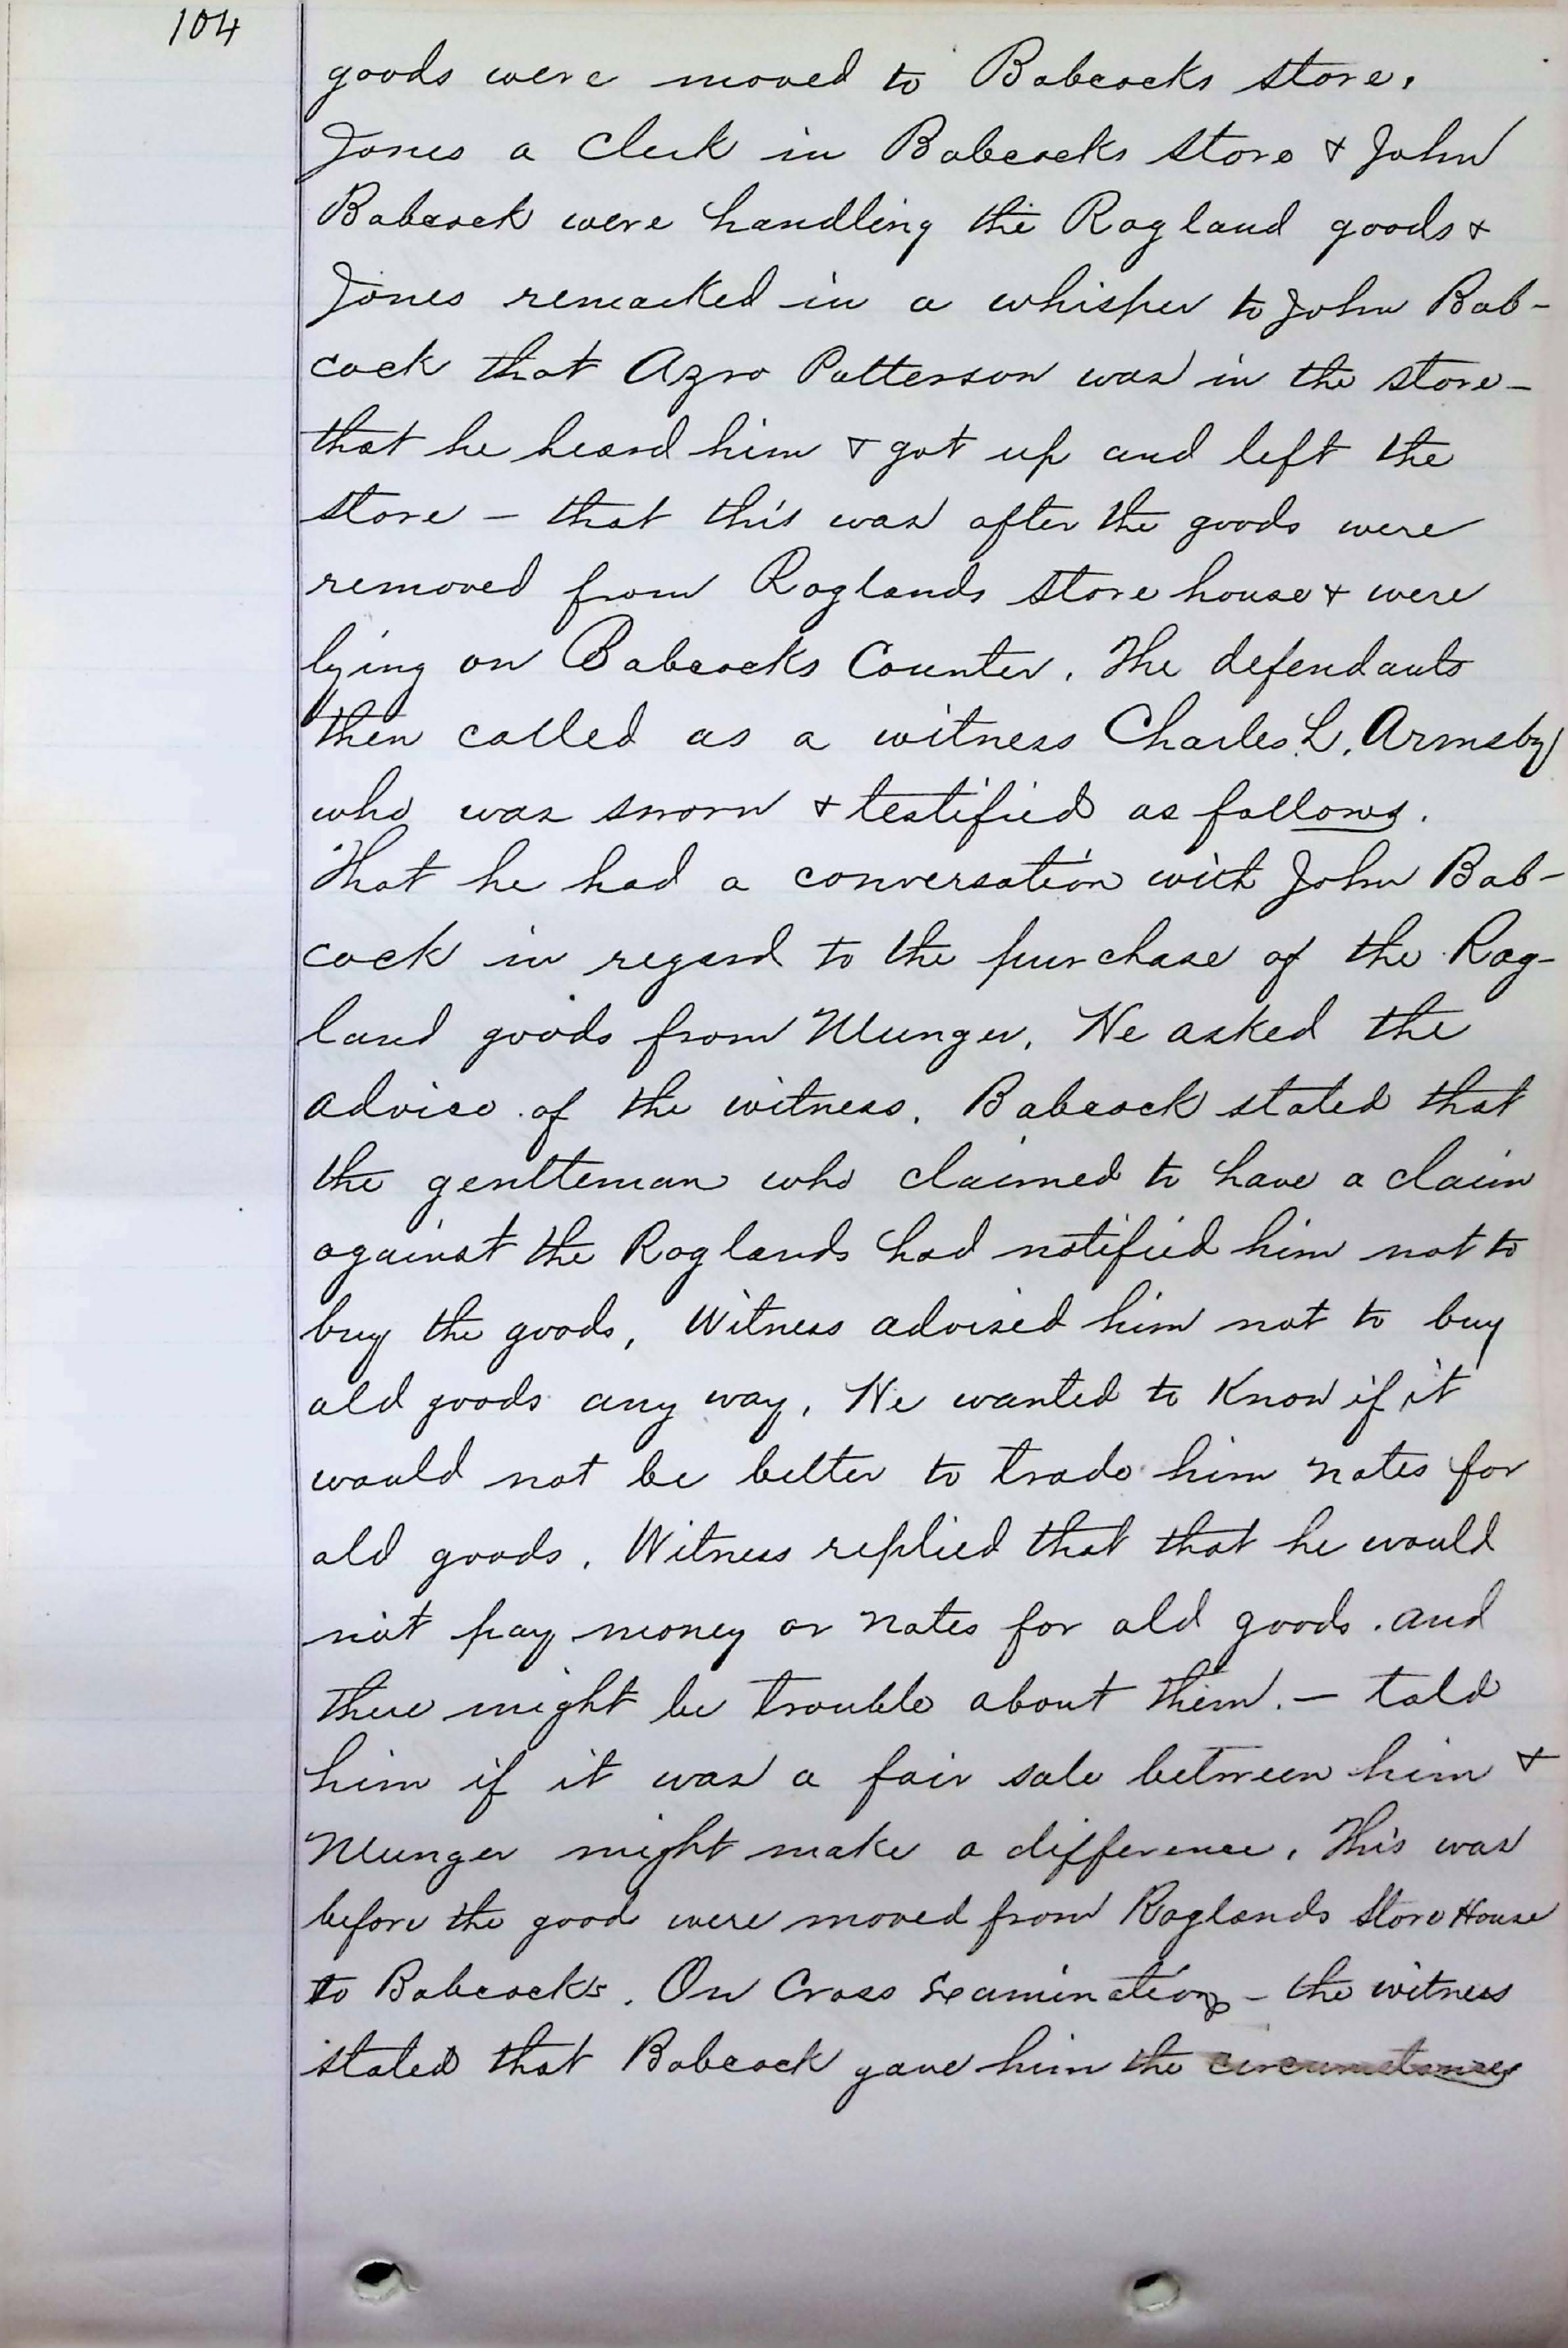 104
goods were moved to Babcocks store.
Jones a Clerk in Babcocks store & John
Babcock were handling the Ragland goods &
Jones remarked in a whisper to John Bab-
cock that Azro Patterson was in the store -
that he heard him & got up and left the
store - that this was after the goods were
removed from Raglands store house & were
lying on Babcocks Counter. The defendants
then called as a witness Charles L. Armsby
who was sworn & testified as follows.
That he had a conversation with John Bab-
cock in regard to the purchase of the Rag-
land goods from Munger. He asked the
advice of the witness. Babcock stated that
the gentteman who claimed to have a claim
against the Raglands had notified him not to
buy the goods, Witness advised him not to buy
old goods any way. He wanted to know if it
would not be better to trade him notes for
old goods. Witness replied that that he would
not pay money or notes for old goods. and
there might be trouble about them. - told
him if it was a fair sale between him &
Munger might make a difference. This was
before the good were moved from Raglands Store House
to Babcocks. On Cross Examination - the witness
stated that Babcock gave him the circumstances